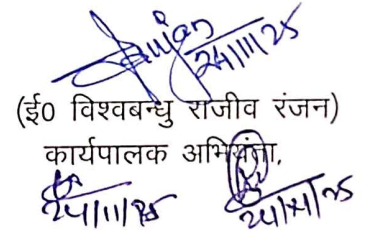 Ranjan
24/11/25
(ई0 विश्वबन्धु राजीव रंजन)
कार्यपालक अभियंता,
24/11/25 24/11/25